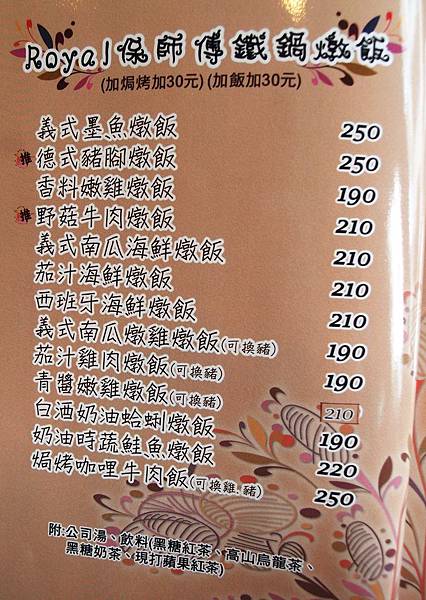 Royal保師傅鐵鍋燉飯
(加焗烤加30元)(加飯加30元)
義式墨魚燉飯 250
推 德式豬腳燉飯 250
香料嫩雞燉飯 190
推 野菇牛肉燉飯 210
義式南瓜海鮮燉飯 210
茄汁海鮮燉飯 210
西班牙海鮮燉飯 210
義式南瓜燉雞燉飯(可換豬) 190
茄汁雞肉燉飯(可換豬) 190
青醬嫩雞燉飯(可換豬) 210
白酒奶油蛤蜊燉飯 190
奶油時蔬鮭魚燉飯 220
焗烤咖哩牛肉飯(可換雞.豬) 250
附:公司湯、飲料(黑糖紅茶、高山烏龍茶、
黑糖奶茶、現打蘋果紅茶)